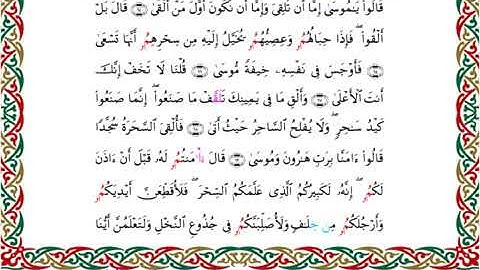 قَالُوا۟ يَـٰمُوسَىٰٓ إِمَّآ أَن تُلْقِىَ وَإِمَّآ أَن نَّكُونَ أَوَّلَ مَنْ أَلْقَىٰ ۝ قَالَ بَلْ
أَلْقُوا۟ ۖ فَإِذَا حِبَالُهُمُۥ وَعِصِيُّهُمُۥ يُخَيَّلُ إِلَيْهِ مِن سِحْرِهِمُۥٓ أَنَّهَا تَسْعَىٰ
۝ فَأَوْجَسَ فِى نَفْسِهِۦ خِيفَةً مُّوسَىٰ ۝ قُلْنَا لَا تَخَفْ إِنَّكَ
أَنتَ ٱلْأَعْلَىٰ ۝ وَأَلْقِ مَا فِى يَمِينِكَ تَلَقَّفْ مَا صَنَعُوٓا۟ ۖ إِنَّمَا صَنَعُوا۟
كَيْدُ سَـٰحِرٍ ۖ وَلَا يُفْلِحُ ٱلسَّاحِرُ حَيْثُ أَتَىٰ ۝ فَأُلْقِىَ ٱلسَّحَرَةُ سُجَّدًا
قَالُوٓا۟ ءَامَنَّا بِرَبِّ هَـٰرُونَ وَمُوسَىٰ ۝ قَالَ ءَا۬مَنتُمُۥ لَهُۥ قَبْلَ أَنْ ءَاذَنَ
لَكُمُۥٓ ۖ إِنَّهُۥ لَكَبِيرُكُمُ ٱلَّذِى عَلَّمَكُمُ ٱلسِّحْرَ ۖ فَلَأُقَطِّعَنَّ أَيْدِيَكُمُۥ
وَأَرْجُلَكُمُۥ مِنْ خِلَـٰفٍ وَلَأُصَلِّبَنَّكُمُۥ فِى جُذُوعِ ٱلنَّخْلِ وَلَتَعْلَمُنَّ أَيُّنَآ